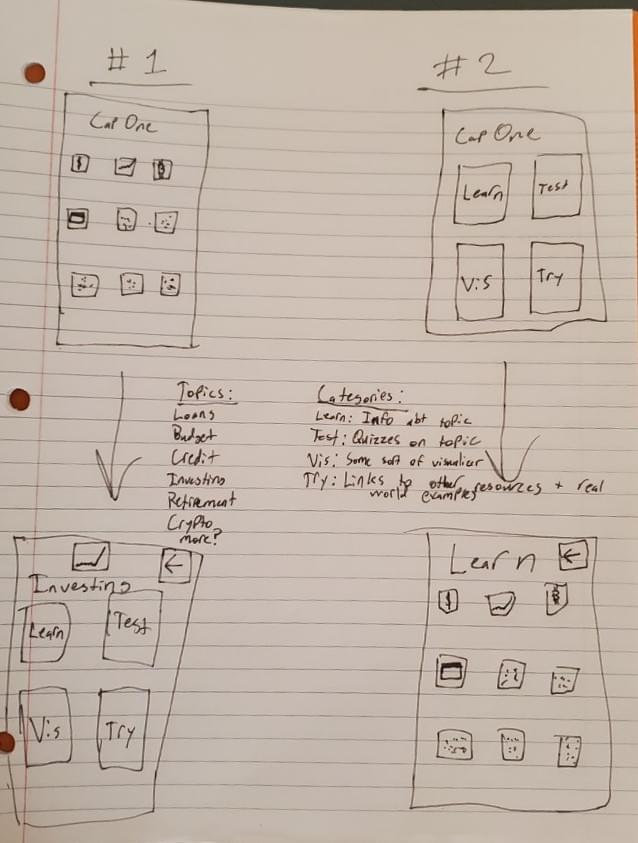 #1
#2
Cap One
$
B
Cap One
Learn
Test
Vis
Try
Topics:
Loans
Budget
Credit
Investing
Retirement
Crypto
more?
Categories:
Learn: Info abt topic
Test: Quizzes on topic
Vis: Some sort of visualizer
Try: Links to other resources + real
world examples
Investing
Learn
Test
Vis
Try
Learn
$
B